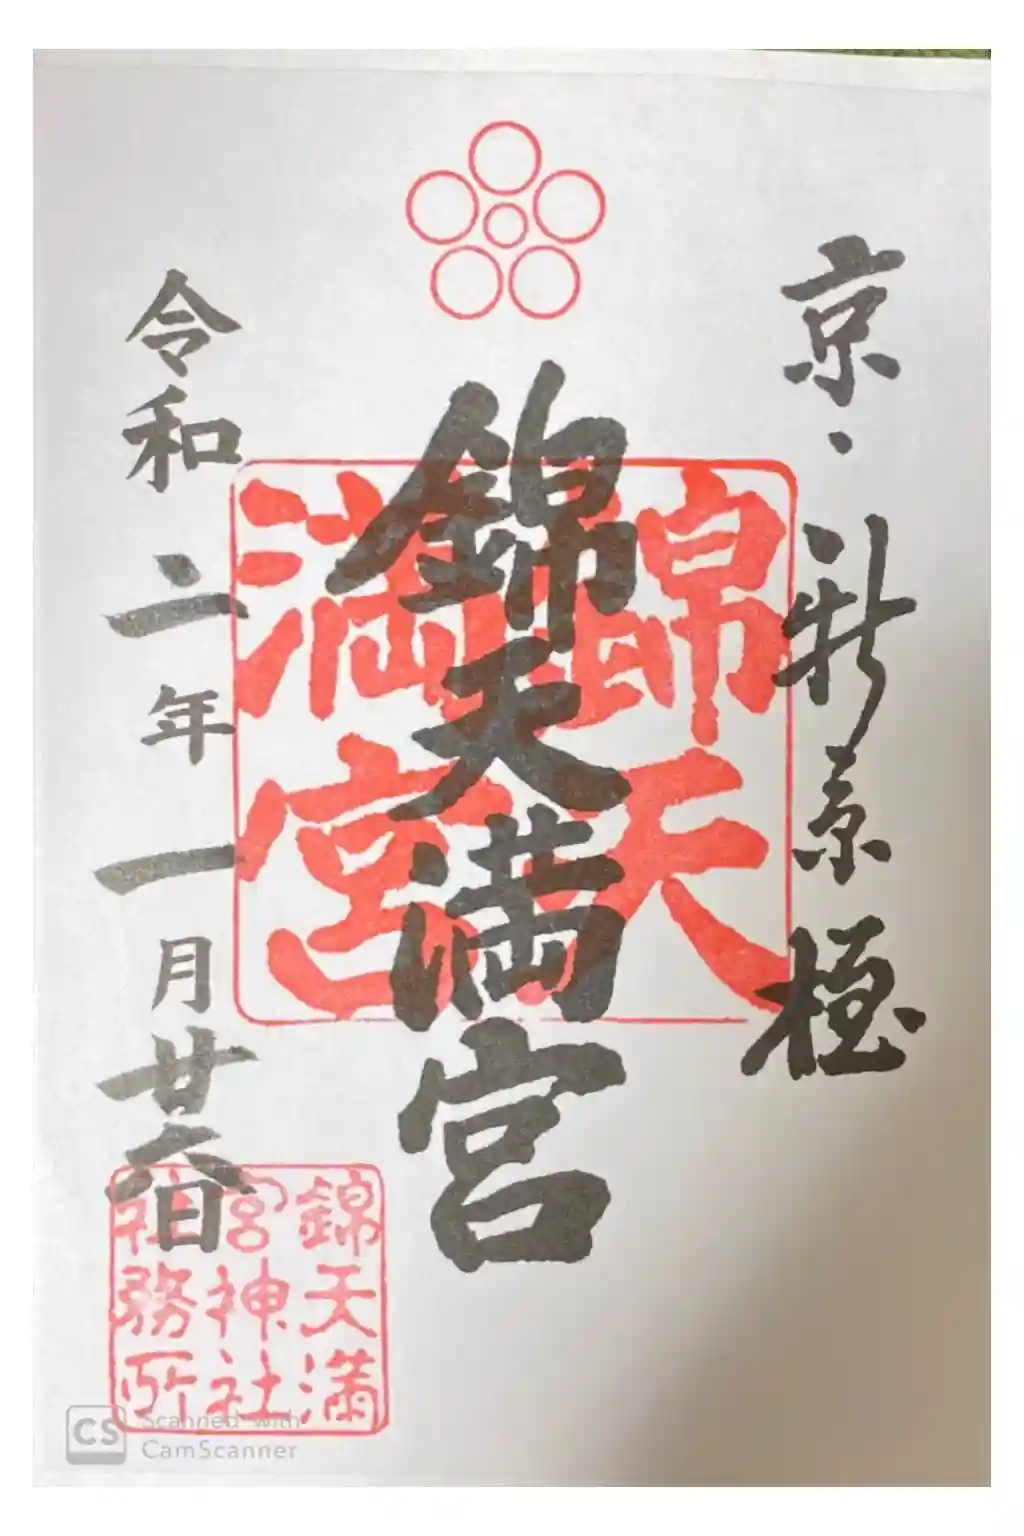 京・新京極
錦天満宮
令和二年一月廿六日
錦天
満宮
錦天満
宮神社
社務所
CS Scanned with
CamScanner